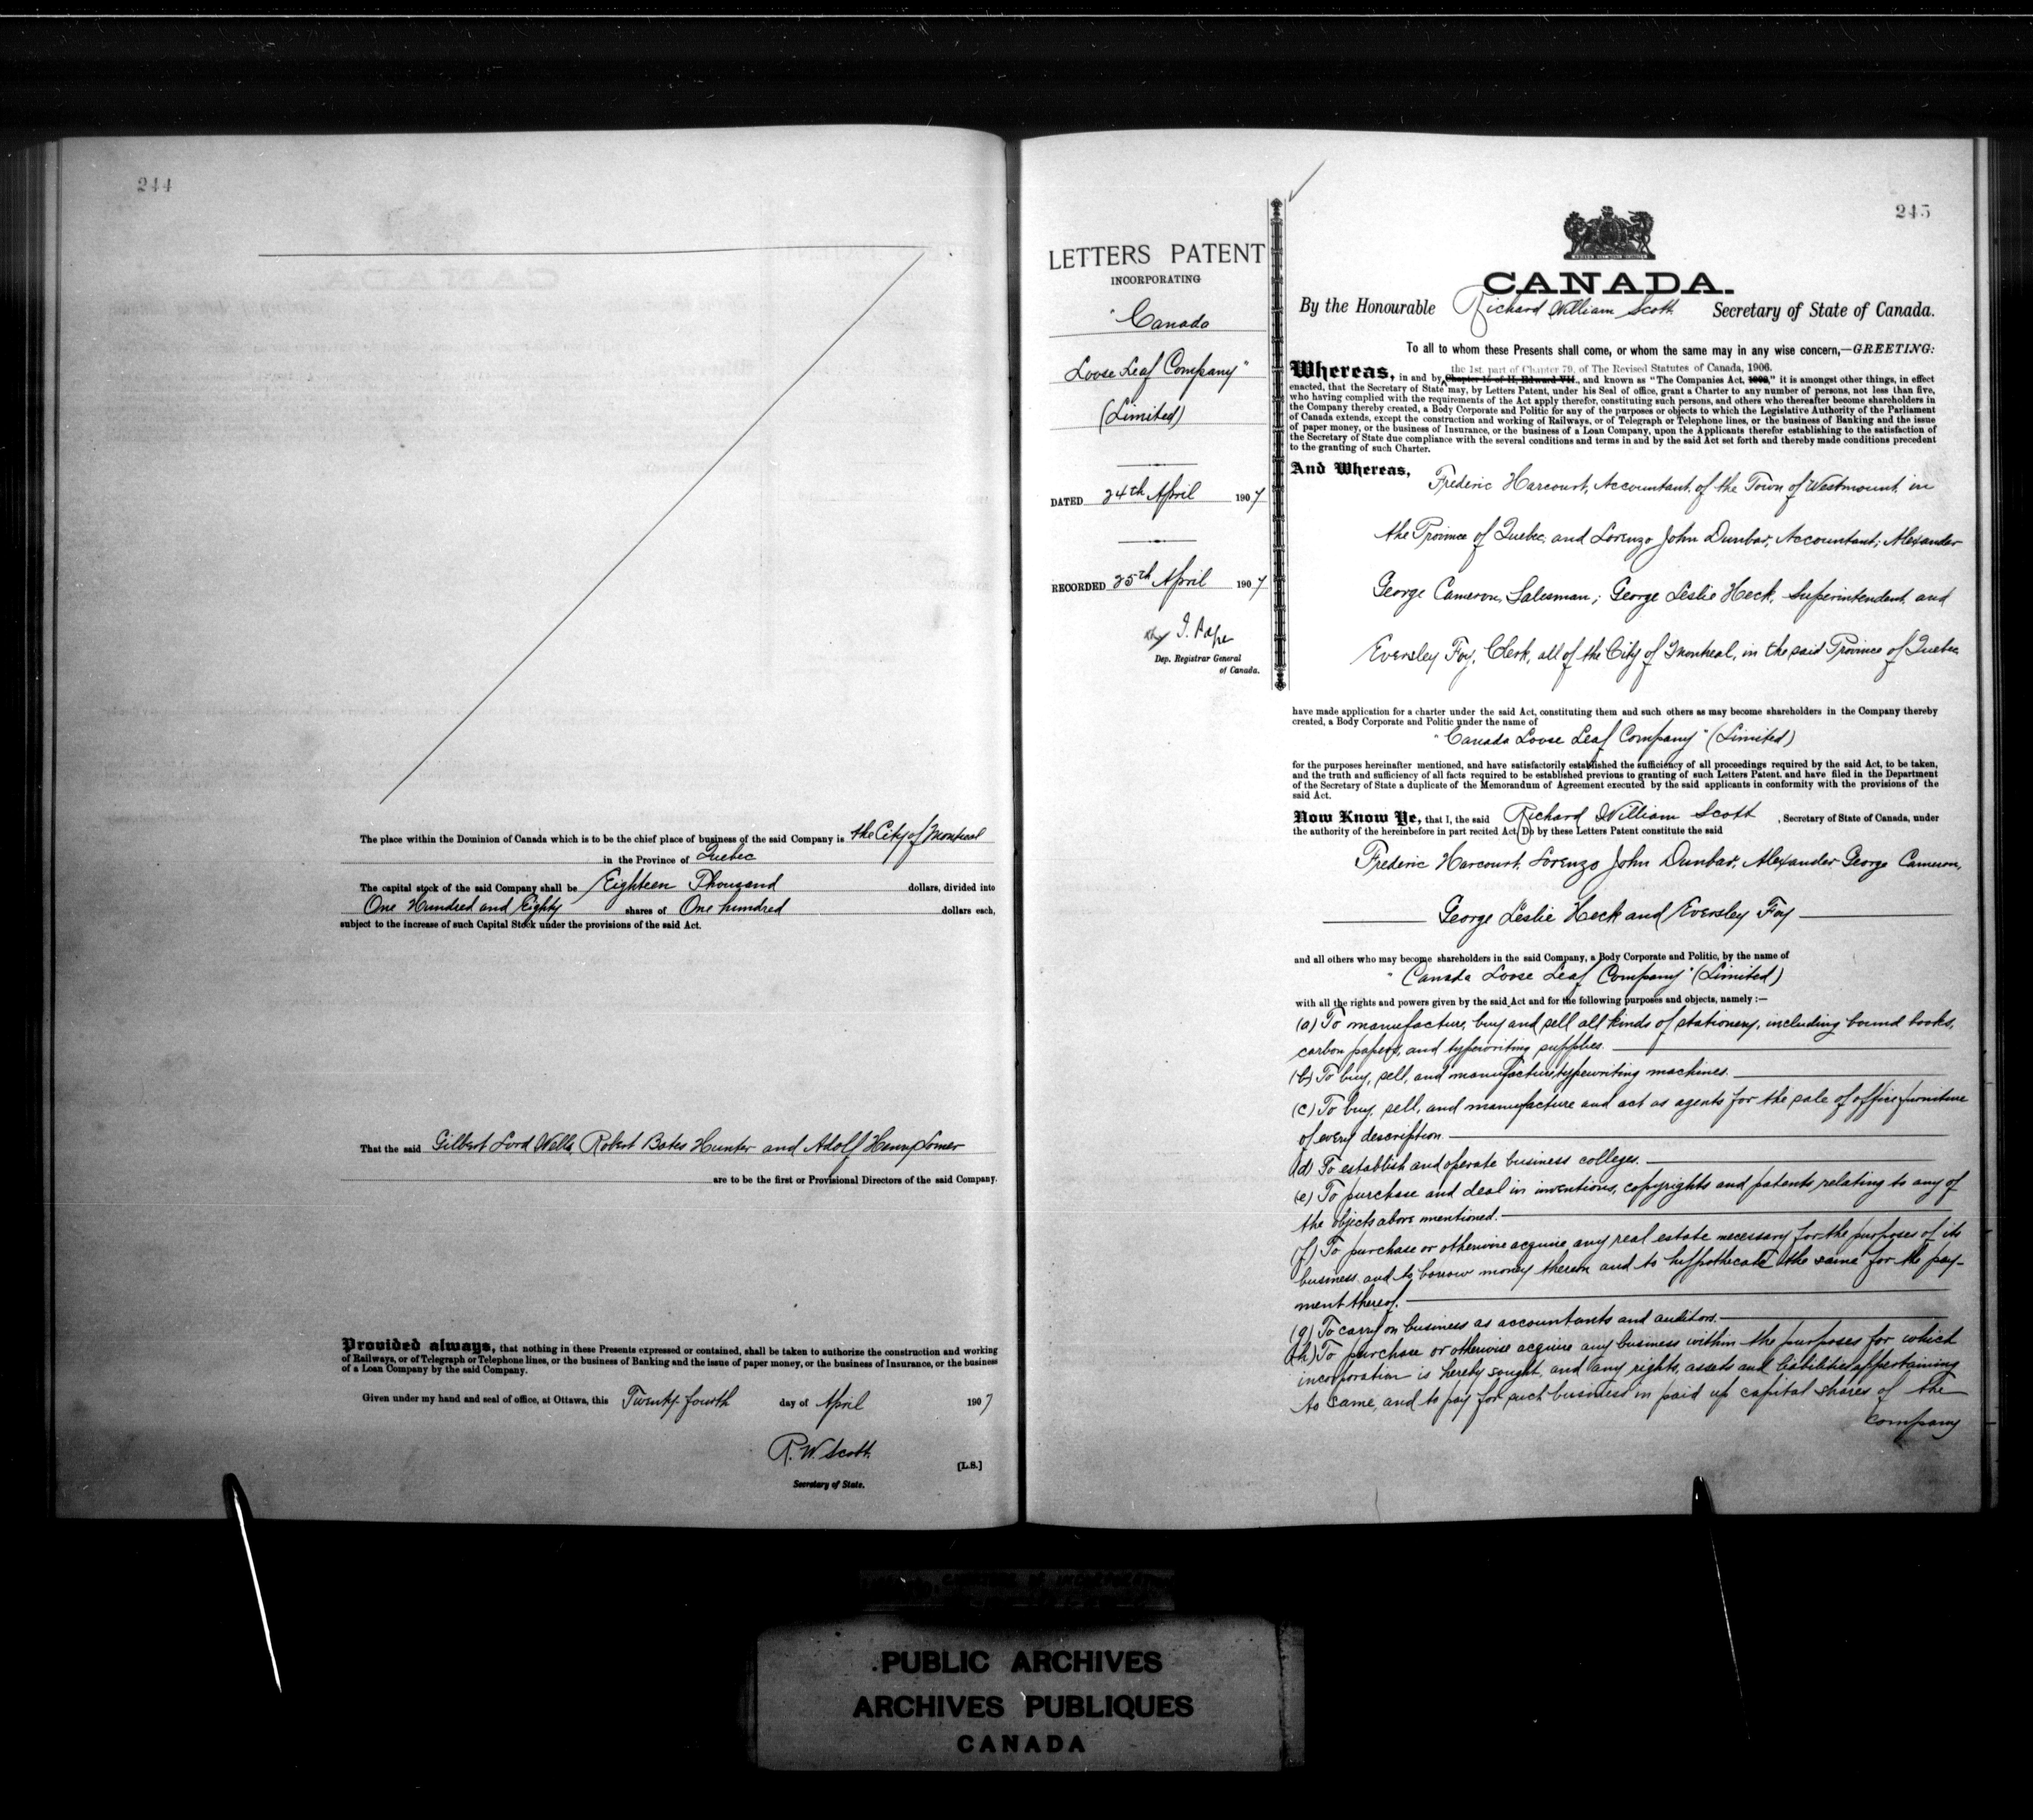 244
The place within the Dominion of Canada which is to be the chief place of business of the said Company is the City of Montreal
in the Province of Quebec
The capital stock of the said Company shall be Eighteen Thousand dollars, divided into
One Hundred and Eighty shares of One hundred dollars each,
subject to the increase of such Capital Stock under the provisions of the said Act.
That the said Gilbert Lord Wells, Robert Bates Hunter and Adolf Henry Somer
are to be the first or Provisional Directors of the said Company.
Provided always, that nothing in these Presents expressed or contained, shall be taken to authorize the construction and working
of Railways, or of Telegraph or Telephone lines, or the business of Banking and the issue of paper money, or the business of Insurance, or the business
of a Loan Company by the said Company.
Given under my hand and seal of office, at Ottawa, this Twenty-fourth day of April 1907
R. W. Scott
[L.S.]
Secretary of State.
245
LETTERS PATENT
INCORPORATING
"Canada
Loose Leaf Company"
(Limited)
DATED 24th April 1907
RECORDED 25th April 1907
J. Pope
Dep. Registrar General
of Canada.
CANADA.
By the Honourable Richard William Scott Secretary of State of Canada.
To all to whom these Presents shall come, or whom the same may in any wise concern,—GREETING:
the 1st. part of Chapter 79, of The Revised Statutes of Canada, 1906.
Whereas, in and by Chapter 15 of II, Edward VII., and known as "The Companies Act, 1902," it is amongst other things, in effect
enacted, that the Secretary of State may, by Letters Patent, under his Seal of office, grant a Charter to any number of persons, not less than five,
who having complied with the requirements of the Act apply therefor, constituting such persons, and others who thereafter become shareholders in
the Company thereby created, a Body Corporate and Politic for any of the purposes or objects to which the Legislative Authority of the Parliament
of Canada extends, except the construction and working of Railways, or of Telegraph or Telephone lines, or the business of Banking and the issue
of paper money, or the business of Insurance, or the business of a Loan Company, upon the Applicants therefor establishing to the satisfaction of
the Secretary of State due compliance with the several conditions and terms in and by the said Act set forth and thereby made conditions precedent
to the granting of such Charter.
And Whereas, Frederic Harcourt, Accountant, of the Town of Westmount, in
the Province of Quebec, and Lorenzo John Dunbar, Accountant; Alexander
George Cameron, Salesman; George Leslie Heck, Superintendent, and
Eversley Foy, Clerk, all of the City of Montreal, in the said Province of Quebec
have made application for a charter under the said Act, constituting them and such others as may become shareholders in the Company thereby
created, a Body Corporate and Politic under the name of
"Canada Loose Leaf Company" (Limited)
for the purposes hereinafter mentioned, and have satisfactorily established the sufficiency of all proceedings required by the said Act, to be taken,
and the truth and sufficiency of all facts required to be established previous to granting of such Letters Patent, and have filed in the Department
of the Secretary of State a duplicate of the Memorandum of Agreement executed by the said applicants in conformity with the provisions of the
said Act.
Now Know Ye, that I, the said Richard William Scott, Secretary of State of Canada, under
the authority of the hereinbefore in part recited Act, Do by these Letters Patent constitute the said
Frederic Harcourt, Lorenzo John Dunbar, Alexander George Cameron,
George Leslie Heck and Eversley Foy
and all others who may become shareholders in the said Company, a Body Corporate and Politic, by the name of
"Canada Loose Leaf Company" (Limited)
with all the rights and powers given by the said Act and for the following purposes and objects, namely :—
(a) To manufacture, buy and sell all kinds of stationery, including bound books,
carbon papers, and typewriting supplies.
(b) To buy, sell, and manufacture typewriting machines.
(c) To buy, sell, and manufacture and act as agents for the sale of office furniture
of every description.
(d) To establish and operate business colleges.
(e) To purchase and deal in inventions, copyrights and patents relating to any of
the objects above mentioned.
(f) To purchase or otherwise acquire any real estate necessary for the purposes of its
business and to borrow money thereon and to hypothecate the same for the pay-
ment thereof.
(g) To carry on business as accountants and auditors.
(h) To purchase or otherwise acquire any business within the purposes for which
incorporation is hereby sought, and any rights, assets and liabilities appertaining
to same, and to pay for such business in paid up capital shares of the
company
PUBLIC ARCHIVES
ARCHIVES PUBLIQUES
CANADA